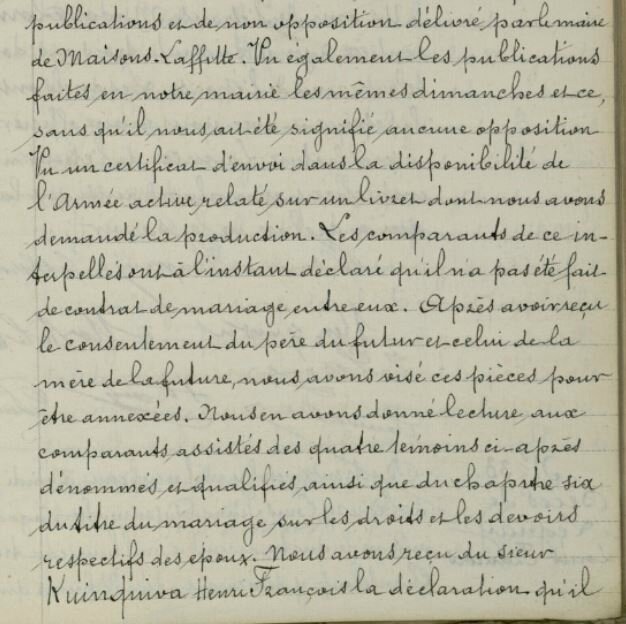 publications et de non opposition délivré par le maire
de Maisons-Laffitte. Vu également les publications
faites en notre mairie les mêmes dimanches et ce,
sans qu'il nous ait été signifié aucune opposition
Vu un certificat d'envoi dans la disponibilité de
l'Armée active relaté sur un livret dont nous avons
demandé la production. Les comparants de ce in-
terpellés ont à l'instant déclaré qu'il n'a pas été fait
de contrat de mariage entre eux. Après avoir reçu
le consentement du père du futur et celui de la
mère de la future, nous avons visé ces pièces pour
être annexées. Nous en avons donné lecture aux
comparants assistés des quatre témoins ci-après
dénommés et qualifiés, ainsi que du chapitre six
du titre du mariage sur les droits et les devoirs
respectifs des époux. Nous avons reçu du sieur
Kuinquiva Henri François la déclaration qu'il